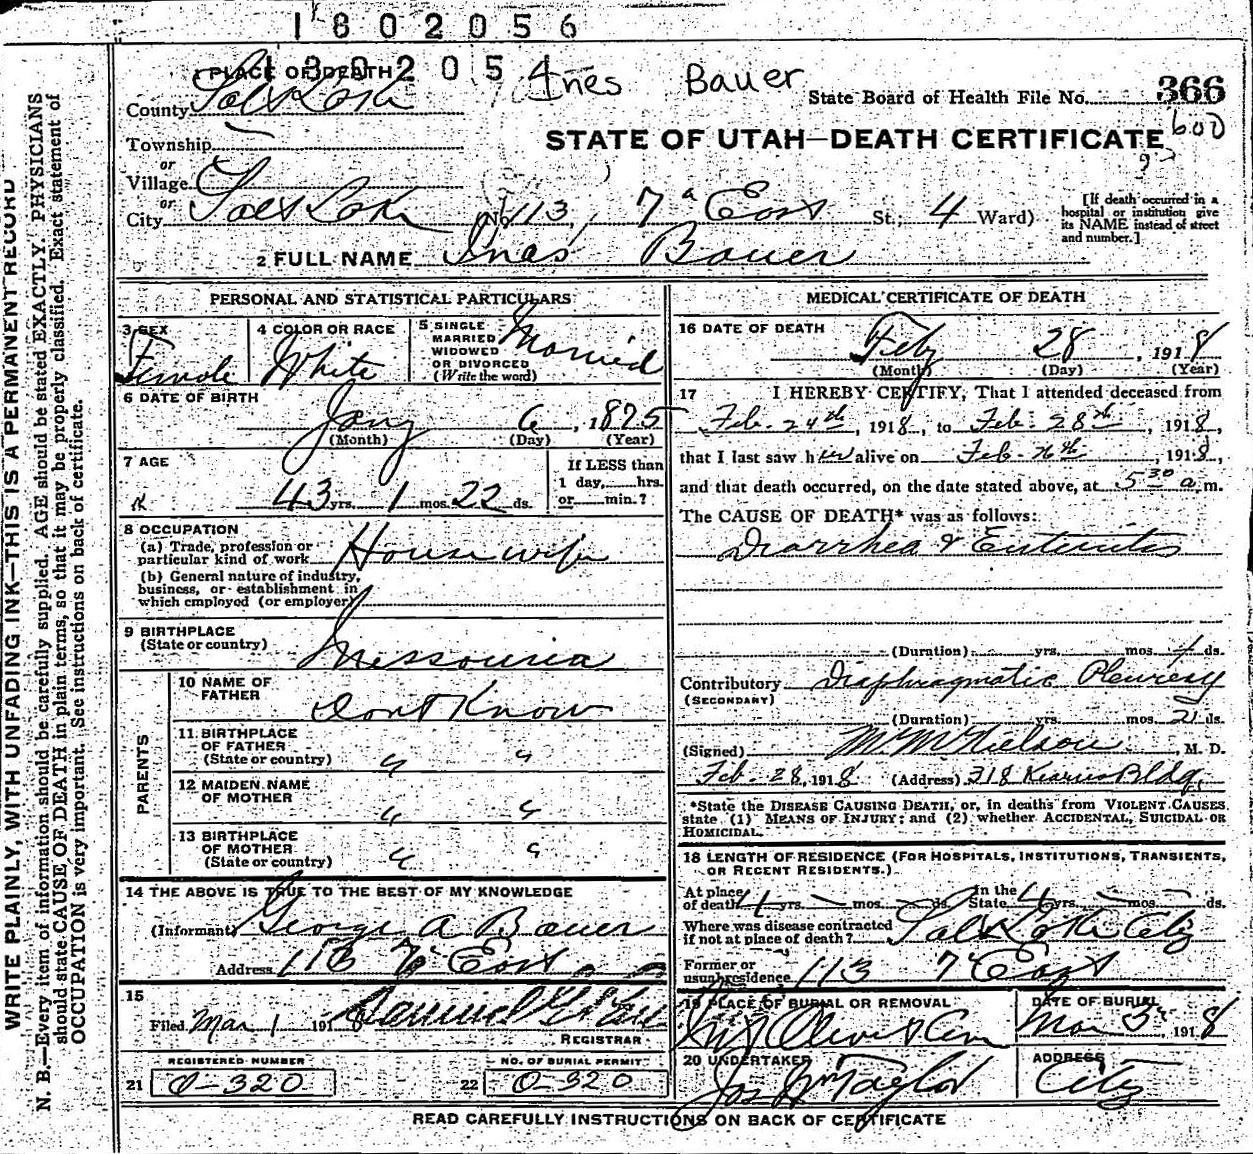 1802056
1302054 Ines Bauer
1 PLACE OF DEATH
County Salt Lake
State Board of Health File No. 366
600
Township
STATE OF UTAH—DEATH CERTIFICATE
or
Village
or
City Salt Lake No. 113, 7th East St.; 4 Ward)
[If death occurred in a
hospital or institution give
its NAME instead of street
and number.]
2 FULL NAME Inas Bauer
PERSONAL AND STATISTICAL PARTICULARS
3 SEX
Female
4 COLOR OR RACE
White
5 SINGLE
MARRIED
WIDOWED
OR DIVORCED
(Write the word)
Married
6 DATE OF BIRTH
Jany 6, 1875
(Month) (Day) (Year)
7 AGE
43 yrs. 1 mos. 22 ds.
If LESS than
1 day, hrs.
or min.?
8 OCCUPATION
(a) Trade, profession or
particular kind of work House wife
(b) General nature of industry,
business, or establishment in
which employed (or employer)
9 BIRTHPLACE
(State or country) Missouria
PARENTS
10 NAME OF
FATHER Dont Know
11 BIRTHPLACE
OF FATHER
(State or country) " "
12 MAIDEN NAME
OF MOTHER " "
13 BIRTHPLACE
OF MOTHER
(State or country) " "
14 THE ABOVE IS TRUE TO THE BEST OF MY KNOWLEDGE
(Informant) George A Bauer
Address 113 7th East
15
Filed Mar 1 1918
REGISTRAR
REGISTERED NUMBER
21 O-320
NO. OF BURIAL PERMIT
22 O-320
MEDICAL CERTIFICATE OF DEATH
16 DATE OF DEATH
Feby 28, 1918
(Month) (Day) (Year)
17 I HEREBY CERTIFY, That I attended deceased from
Feb. 24th, 1918, to Feb. 28th, 1918,
that I last saw her alive on Feb. , 1918,
and that death occurred, on the date stated above, at 5 30 a.m.
The CAUSE OF DEATH* was as follows:
Diarrhea & Enteritis
(Duration) yrs. mos. ds.
Contributory Diaphragmatic Pleuresy
(SECONDARY)
(Duration) yrs. mos. ds.
(Signed) Nielson, M. D.
Feb. 28, 1918 (Address) 318 Kearns Bldg.
*State the DISEASE CAUSING DEATH, or, in deaths from VIOLENT CAUSES,
state (1) MEANS OF INJURY; and (2) whether ACCIDENTAL, SUICIDAL OR
HOMICIDAL.
18 LENGTH OF RESIDENCE (FOR HOSPITALS, INSTITUTIONS, TRANSIENTS,
OR RECENT RESIDENTS.)
At place
of death 4 yrs. – mos. – ds. In the
State 46 yrs. – mos. – ds.
Where was disease contracted
if not at place of death? Salt Lake City
Former or
usual residence 113 7th East
19 PLACE OF BURIAL OR REMOVAL
Mt Olivet Cem
DATE OF BURIAL
Mar 3rd, 1918
20 UNDERTAKER
Jos Wm Taylor
ADDRESS
City
READ CAREFULLY INSTRUCTIONS ON BACK OF CERTIFICATE
WRITE PLAINLY, WITH UNFADING INK—THIS IS A PERMANENT RECORD
N. B.—Every item of information should be carefully supplied. AGE should be stated EXACTLY. PHYSICIANS
should state CAUSE OF DEATH in plain terms, so that it may be properly classified. Exact statement of
OCCUPATION is very important. See instructions on back of certificate.